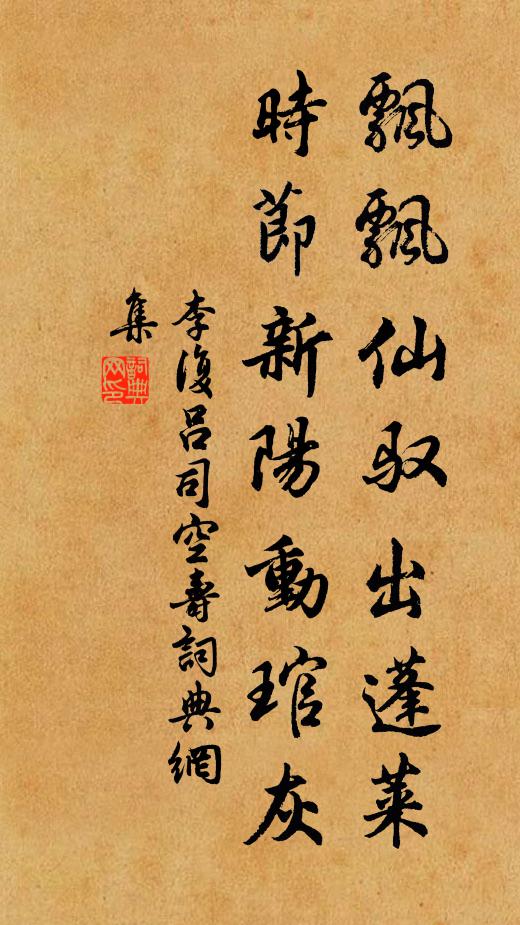 飄飄仙驭出蓬萊
時節新陽動琯灰
李復呂司空壽詞典網
集
詞典網印